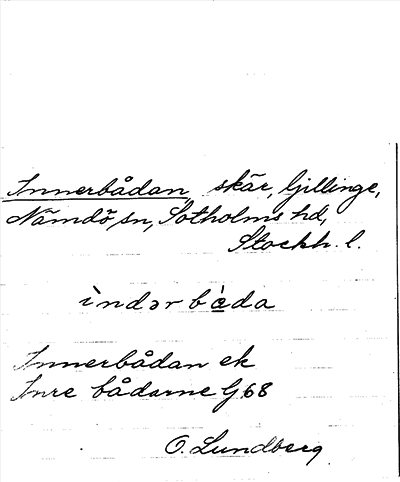 Innerbådan, skär, Gillinge,
Nämdö sn, Sotholms hd,
Stockh. l.
ìndər bà̱da
Innerbådan ek
Inre bådarne G 68
O. Lundberg